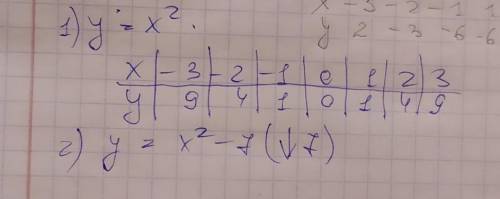 x -3 -2 -1 1
y 2 -3 -6 -6
1) y = x².
x | -3 | -2 | -1 | 0 | 1 | 2 | 3
y | 9 | 4 | 1 | 0 | 1 | 4 | 9
2) y = x² - 7 (↓7)